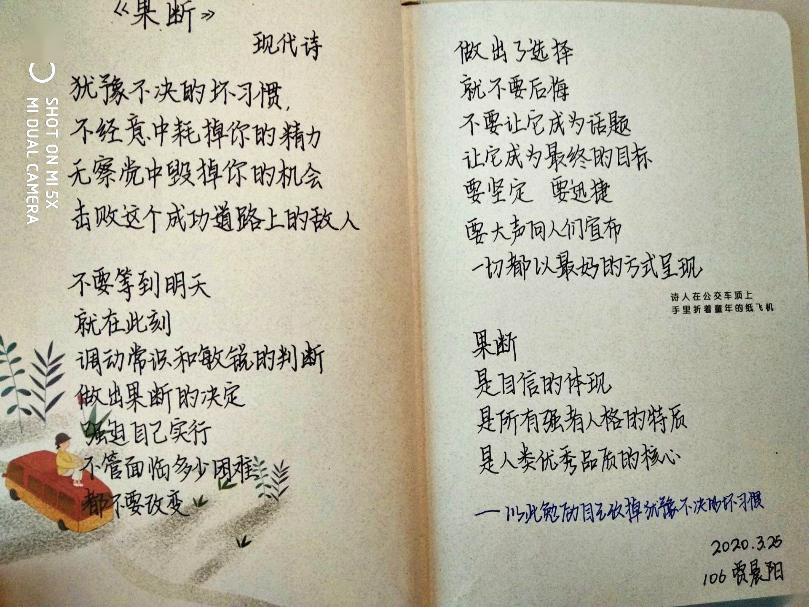 《果断》
现代诗
犹豫不决的坏习惯,
不经意中耗掉你的精力
无察觉中毁掉你的机会
击败这个成功道路上的敌人
不要等到明天
就在此刻
调动常识和敏锐的判断
做出果断的决定
强迫自己实行
不管面临多少困难
都不要改变
SHOT ON MI 5X
MI DUAL CAMERA
做出了选择
就不要后悔
不要让它成为话题
让它成为最终的目标
要坚定 要迅捷
要大声向人们宣布
一切都以最好的方式呈现
诗人在公交车顶上
手里折着童年的纸飞机
果断
是自信的体现
是所有强者人格的特质
是人类优秀品质的核心
——以此勉励自己改掉犹豫不决的坏习惯
2020.3.25
106 贾晨阳